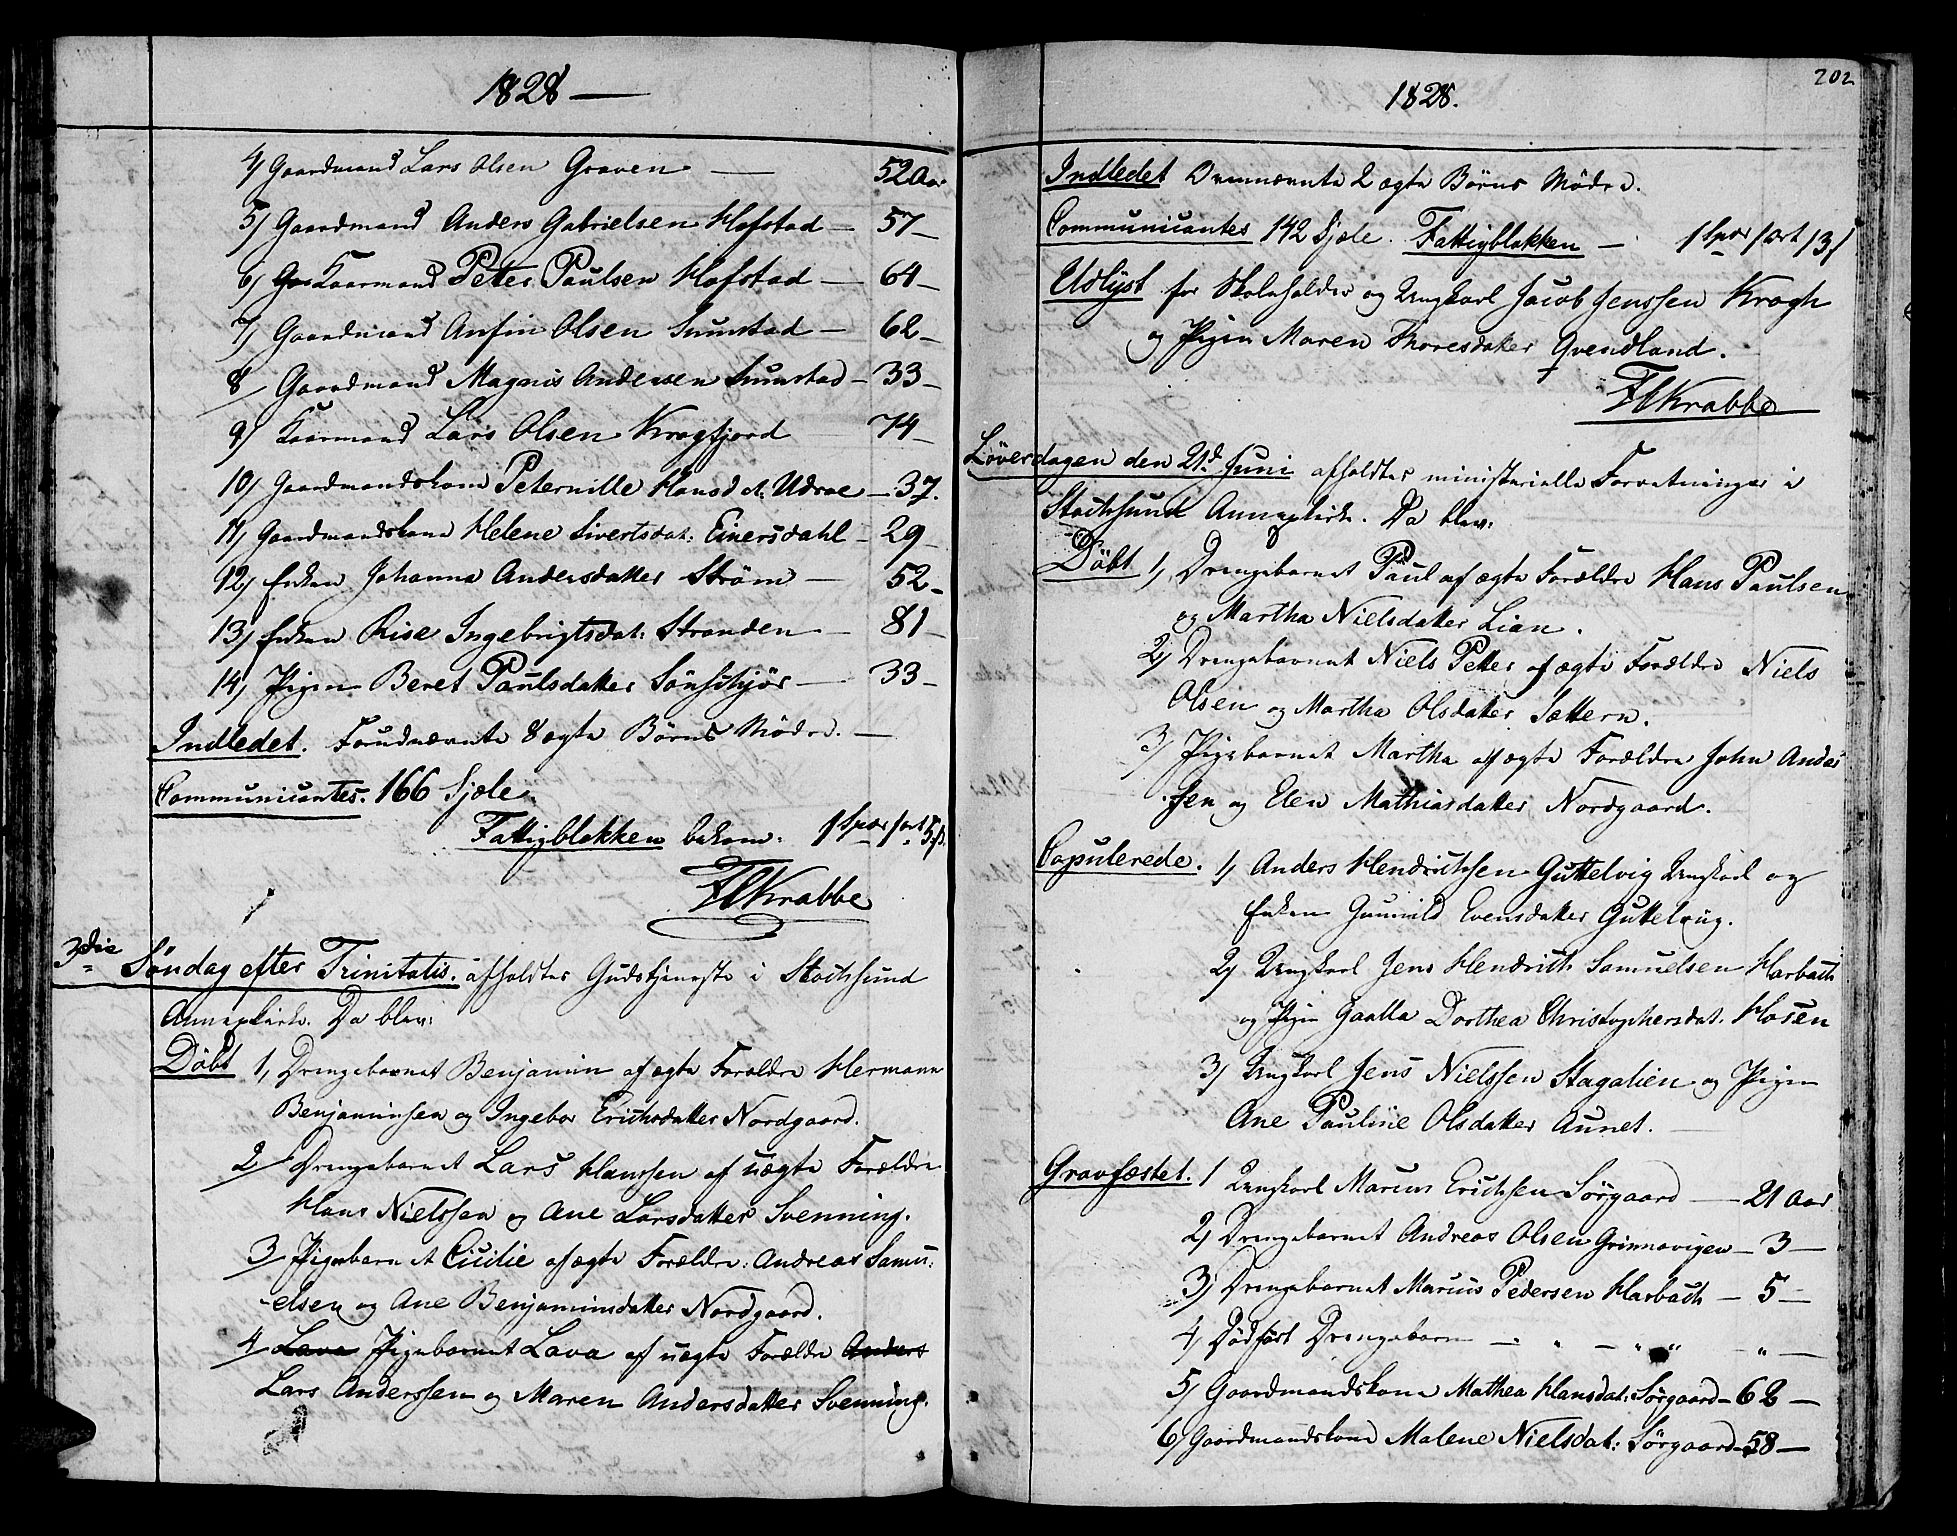 1828 —
4) Gaardmand Lars Olsen Graven — 52 Aar
5) Gaardmand Anders Gabrielsen Hofstad — 57 —
6) Kaarmand Petter Paulsen Hofstad — 64 —
7) Gaardmand Anfin Olsen Sumstad — 62 —
8 Gaardmand Magnus Andersen Sumstad — 33 —
9) Kaarmand Lars Olsen Kragfjord 74 —
10) Gaardmandskone Peternille Hansdt. Udroe — 37.
11) Gaardmandskone Helene Sivertsdat: Einersdahl — 29 —
12) Enken Johanna Andersdatter Strøm — 52 —
13) Enken Rise Ingebrigtsdat: Stranden — 81 —
14) Pigen Beret Paulsdatter Sönschjör — 33 —
Indledet. Forudnævnte 8 ægte Börns Mödre. —
Communicantes. 166 Sjæle.
Fattigblokken bekom:
FCKrabbe
3die Søndag efter Trinitatis. afholdtes Gudstjeneste i Stochsund
Annexkirke. Da blev:
Döbt 1, Drengebarnet Benjamin af ægte Forældre Hermann
Benjaminsen og Ingebor Erichsdatter Nordgaard.
2 Drengebarnet Lars Hanssen af uægte Forældre
Hans Nielssen og Ane Larsdatter Svenning.
3 Pigebarnet Cicilie af ægte Forældre: Andreas Samu:
-elsen og Ane Benjaminsdatter Nordgaard.
4 Lava Pigebarnet Lava af uægte Forældre Anders
Lars Anderssen og Maren Andersdatter Svenning.
202
1828.
Indledet Ovennævnte 2 ægte Börns Mödre.
Communicantes 142 Sjæle. Fattigblokken —
Udlyst for Skoleholder og Ungkarl Jacob Jenssen Kragh
og Pigen Maren Thoresdatter Qvendland.
FCKrabbe
Løverdagen den 21d Juni afholdtes ministerielle Forretninger i
Stochsund Annexkirke. Da blev:
Döbt 1, Drengebarnet Paul af ægte Forældre Hans Paulsen
og Martha Nielsdatter Lian.
2, Drengebarnet Niels Petter af ægte Forældre Niels
Olsen og Martha Olsdatter Sættern.
3) Pigebarnet Martha af ægte Forældre John Anders
sen og Elen Mathiasdatter Nordgaard.
Copulerede. 1, Anders Hendrichsen Guttelvig Ungkarl og
Enken Gunnild Evensdatter Guttelvig.
2, Ungkarl Jens Hendrich Samuelsen Harbach
og Pigen Gaalla Dorthea Christophersdat. Hosen
3, Ungkarl Jens Nielssen Stagalien og Pigen
Ane Pauline Olsdatter Aunet.
Gravfæstet. 1 Ungkarl Marius Erichsen Sörgaard — 21 Aar
2, Drengebarnet Andreas Olsen Grinnavigen — 3 —
3, Drengebarnet Marius Pedersen Harbach — 5 —
4, Dödfödt Drengebarn — " — " " — " —
5, Gaardmandskone Mathea Hansdat: Sörgaard — 62 —
6, Gaardmandskone Malene Nielsdat: Sörgaard — 58 —